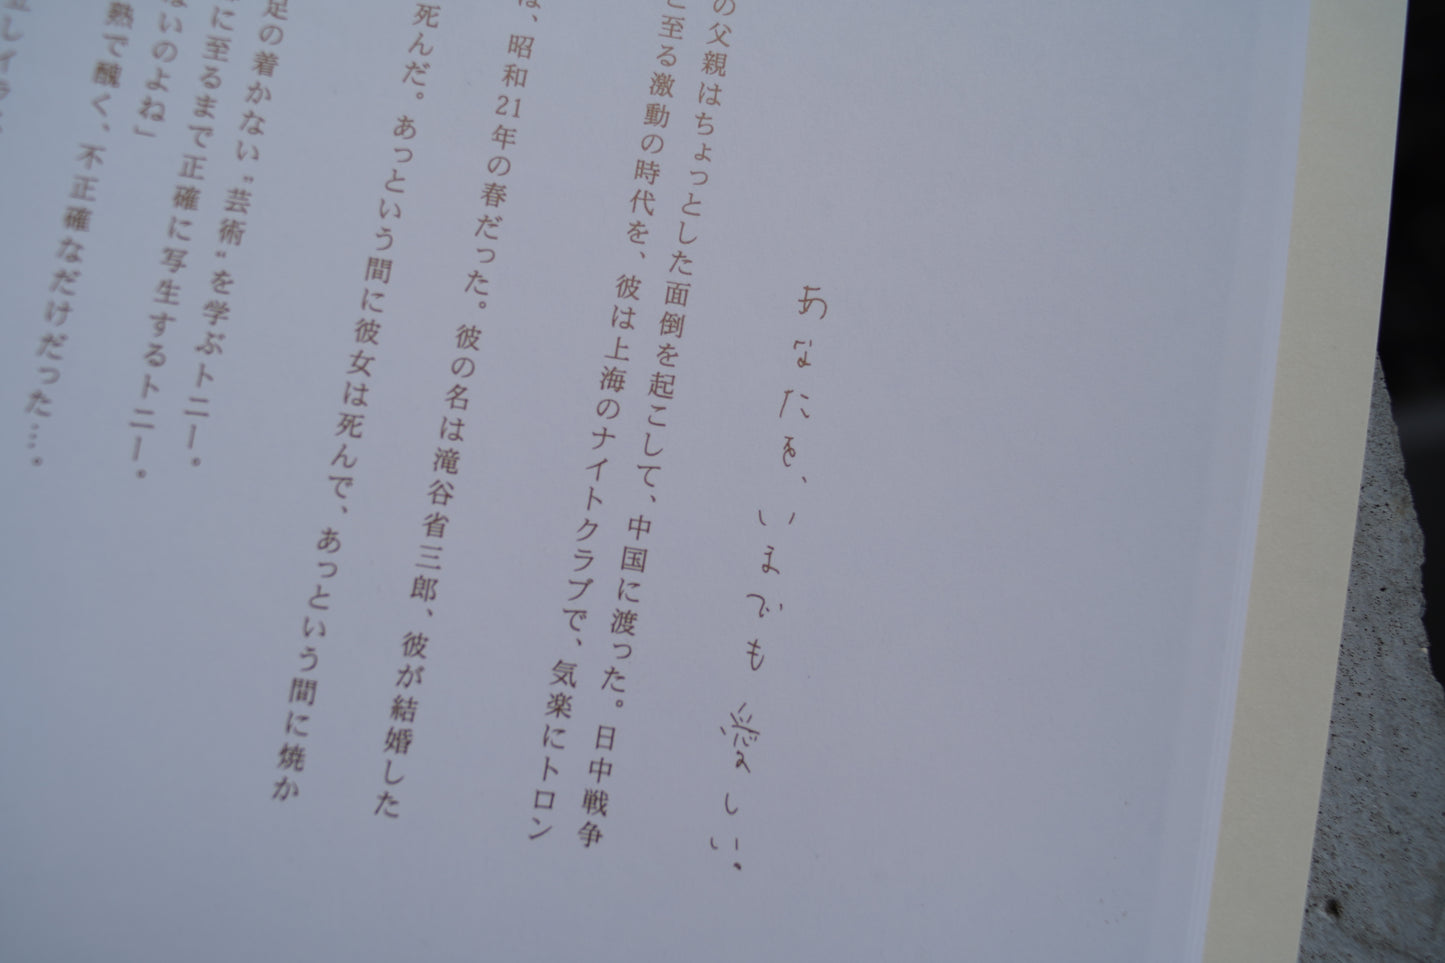 あなたを、いまでも愛しい。
の父親はちょっとした面倒を起こして、中国に渡った。日中戦争
と至る激動の時代を、彼は上海のナイトクラブで、気楽にトロン
は、昭和21年の春だった。彼の名は滝谷省三郎、彼が結婚した
死んだ。あっという間に彼女は死んで、あっという間に焼か
足の着かない"芸術"を学ぶトニー。
に至るまで正確に写生するトニー。
ないのよね」
熟で醜く、不正確なだけだった…。